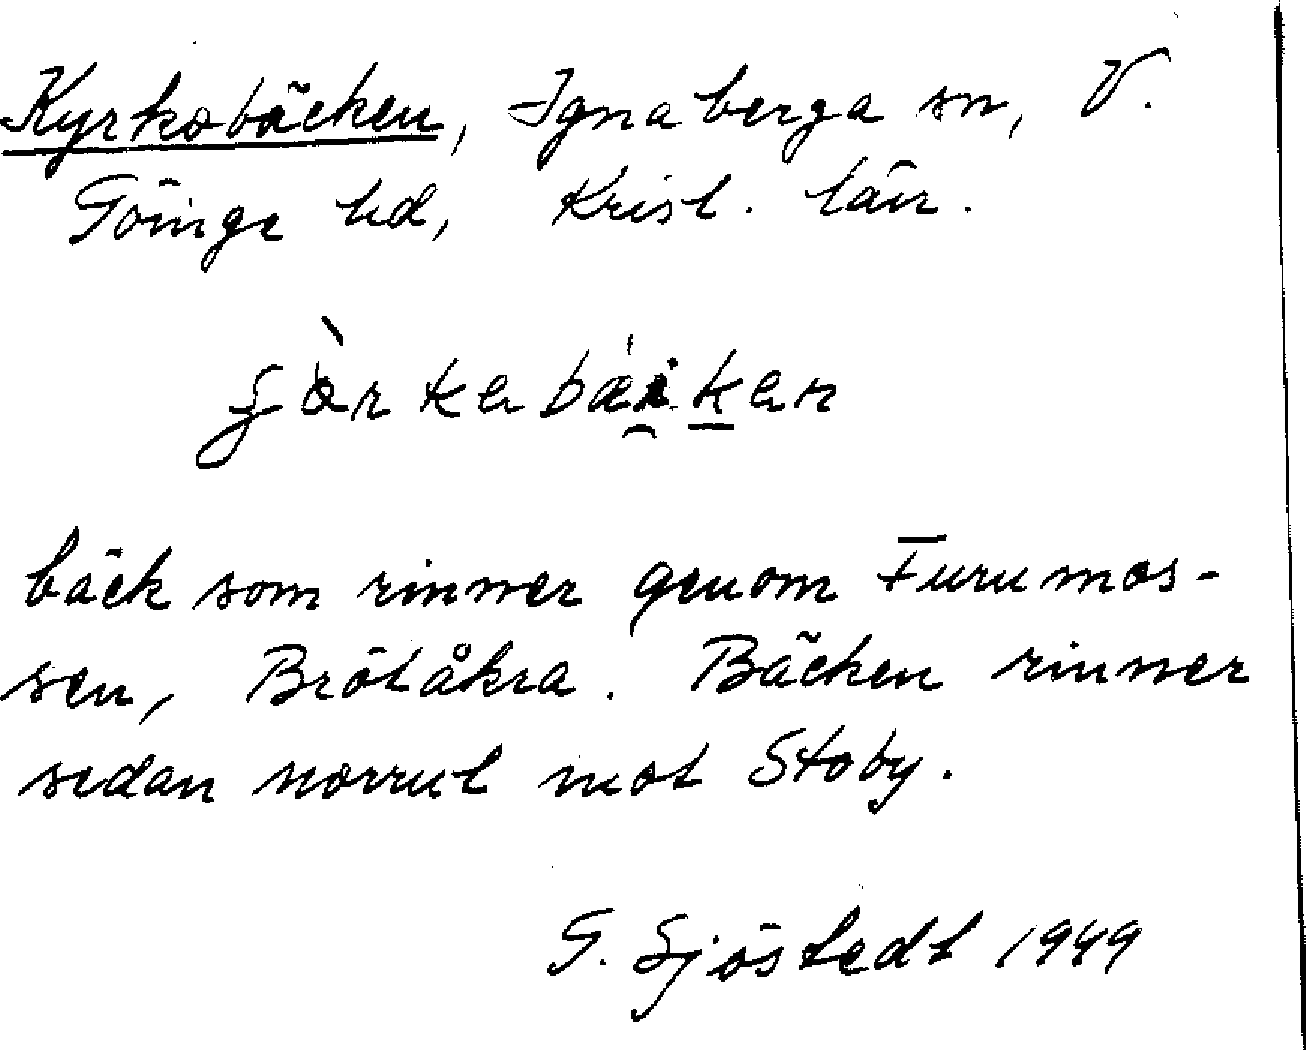 Kyrkobäcken, Ignaberga sn, V.
Göinge hd, Krist. län.
bäck som rinner genom Furumos-
sen, Brötåkra. Bäcken rinner
sedan norrut mot Stoby.
G. Sjöstedt 1949